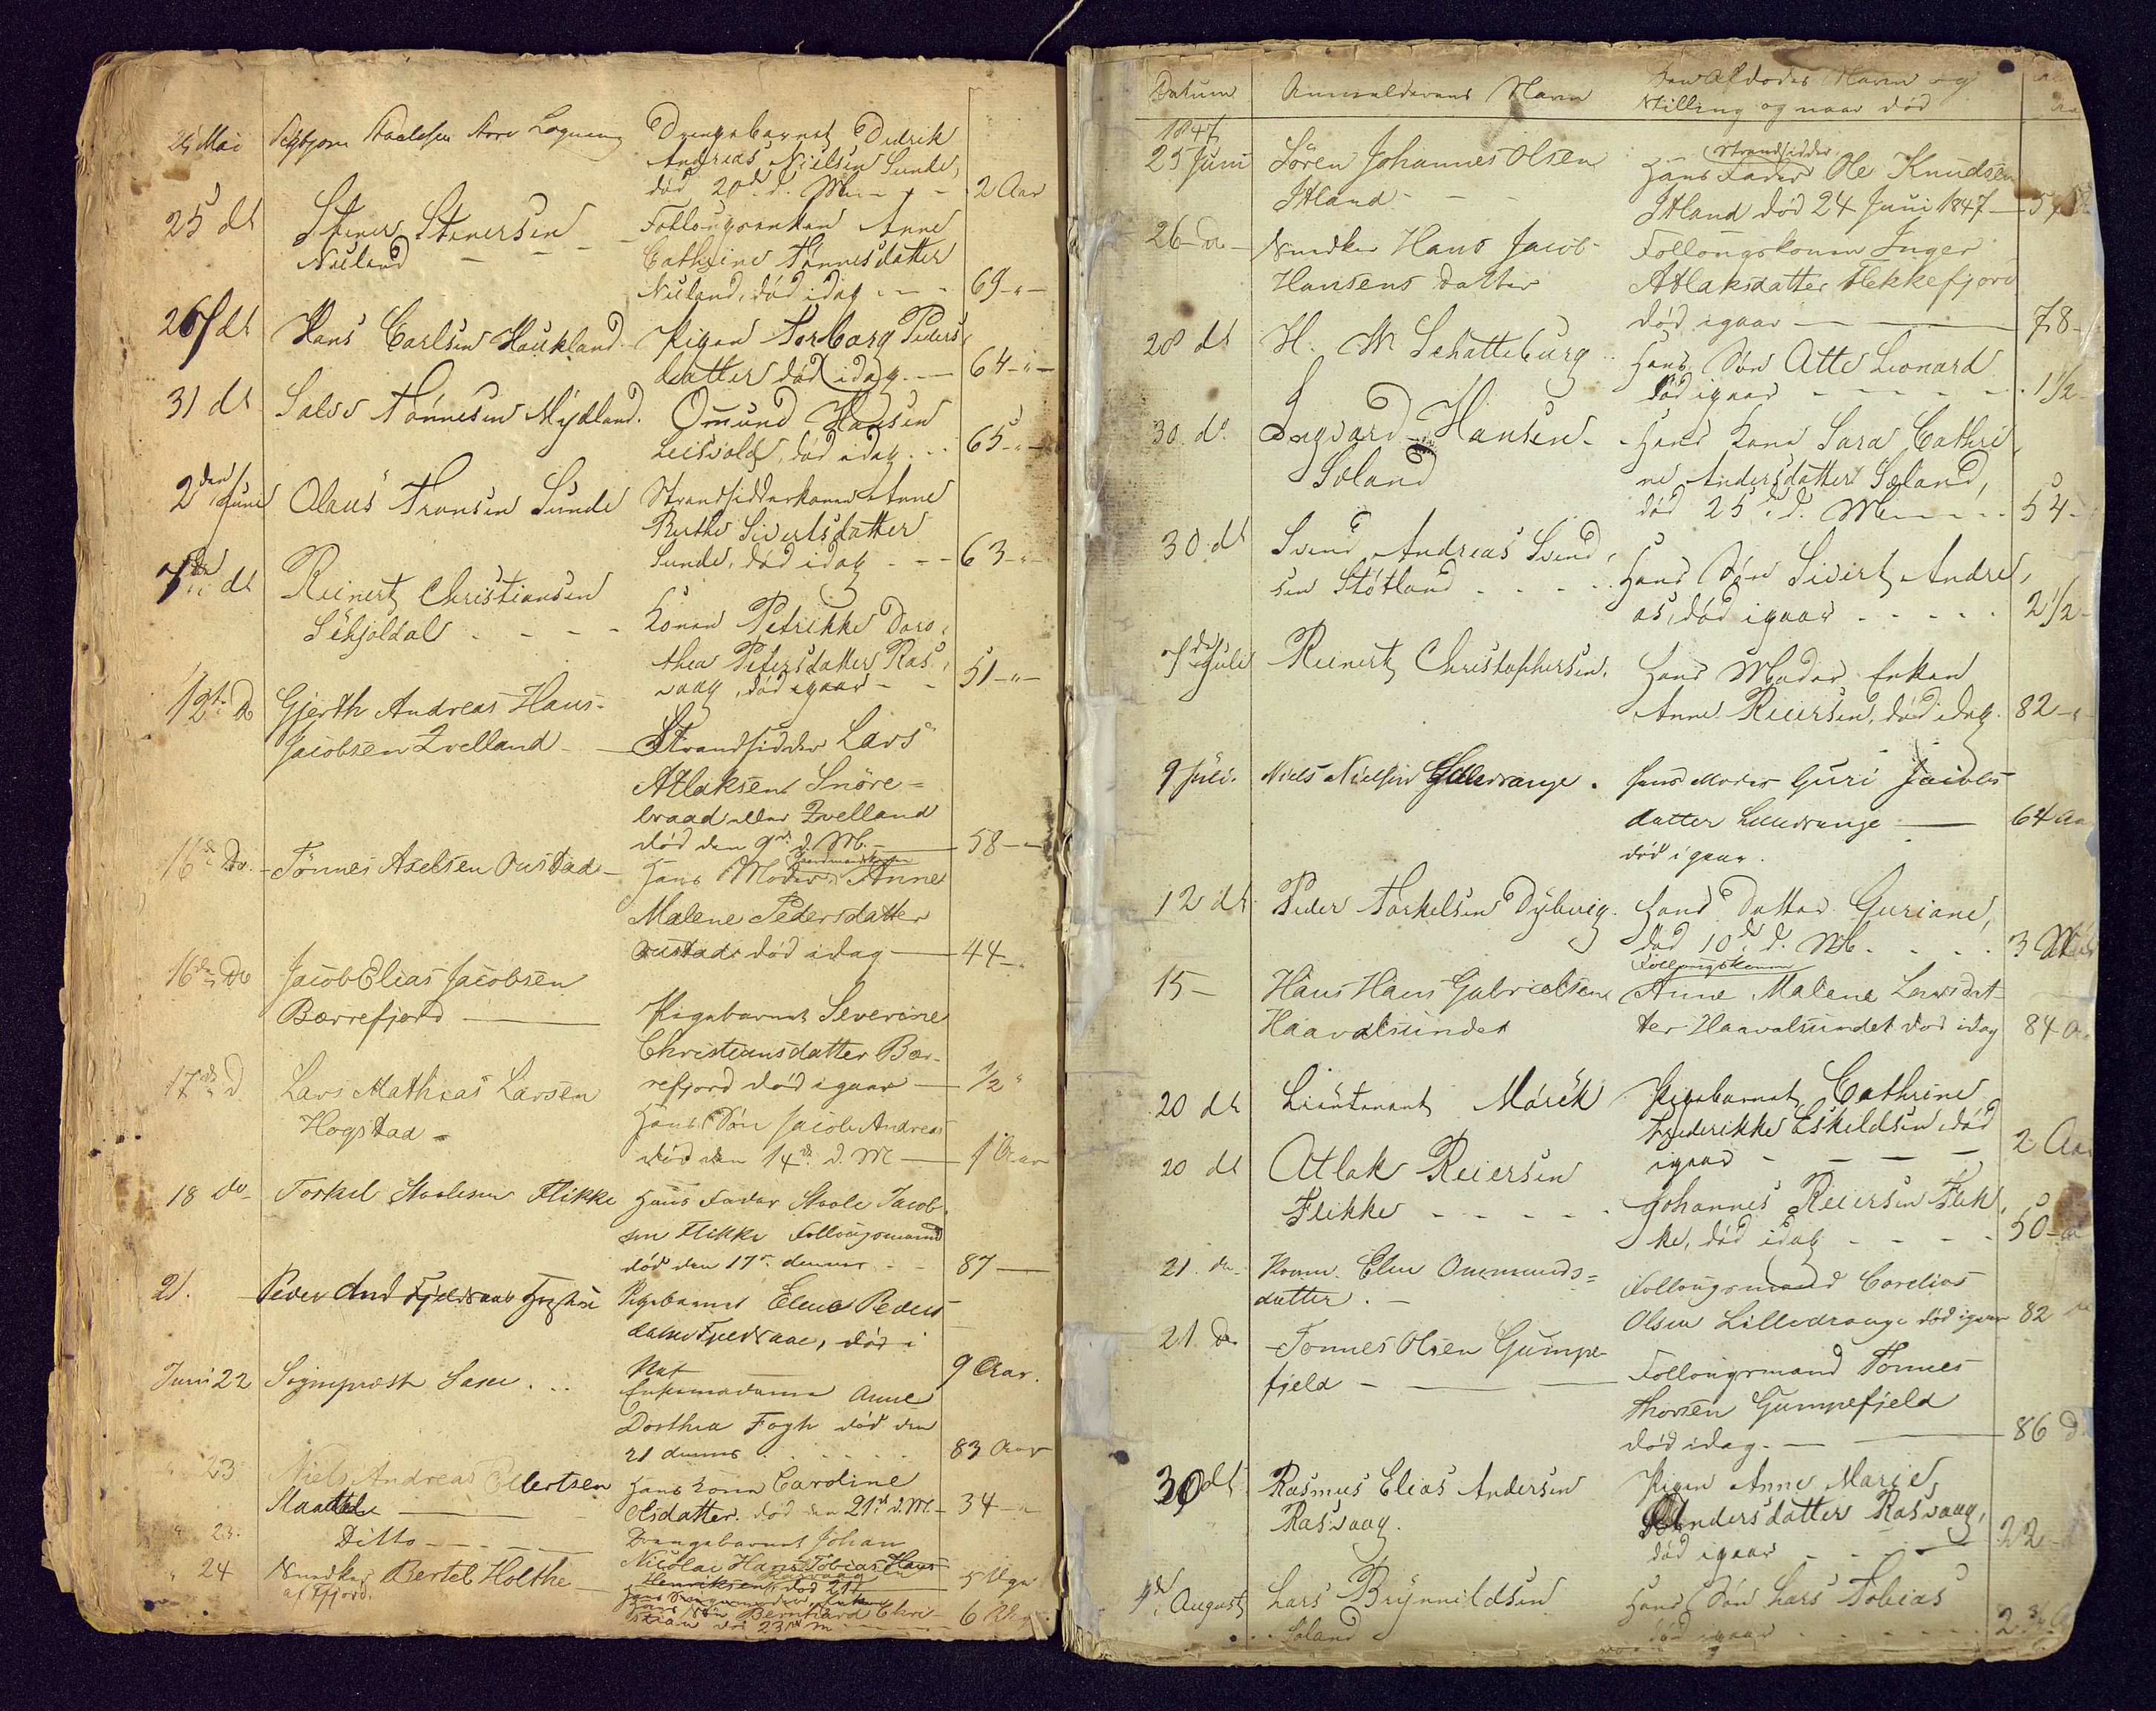 24 Mai
Drengebarnet Didrik
Andreas Nielsen Sunde,
død 20de d. M. - - 2 Aar
25 dt Stener Stenersen Follougsenken Anne
Nuland - - Cathrine Tønnesdatter
Nuland, død idag - - 69 - " -
26 dt Hans Carlsen Haukland. Pigen Torborg Peders
datter død idag. — 64 - " -
31 dt Salve Tønnesen Mydland. Omund Hansen
Leisvold, død idag. . . 65 - " -
2den Juni Olaus Tronsen Sunde Strandsidderkonen Anne
Berthe Sivertsdatter
Sunde, død idag - - - 63 - "
7de dt Reinert Christiansen
Konen Petrikke Doro,
thea Petersdatter Ras,
vaag, død igaar - - 51 - " -
12te Do Gjerth Andreas Hans-
Jacobsen Qvelland - Strandsidder Lars
Atlaksen Snöre-
braad eller Qvelland
død den 9de d. M. — 58 —
16de Do. Tönnes Axelsen Oustad - Hans Moder Gaardmandskone Anne
Malene Pedersdatter
Oustad død idag — 44 - "
16de Do Jacob Elias Jacobsen
Borrefjord — Pigebarnet Severine
Christiansdatter Bor-
refjord død igaar — 1/2 "
17de d. Lars Mathias Larsen
Hogstad - Hans Sön Jacob Andreas
död den 14de d. M — 1 Aar
18 do Torkel Staalesen Flikke Hans Fader Staale Jacob-
sen Flikke Follougsmand
død den 17de dennes - - 87 —
21. Peder And Fjeldsaae Pigebarnet Elene Peders
datter Fjeldsaae, død i
Nat — 9 Aar.
Juni 22 Sognepræst Saxe . . . Enkemadame Anne
Dorthea Fogh død den
21 dennes . . . . . 83 Aar
" 23 Niels Andreas Ellertsen Hans Kone Caroline
Olsdatter. død den 21de d. M - 34 —
" 23. Ditto - - Drengebarnet Johan
Nicolai Hans Tobias Hans
Henriksen Rasvaag død 21de — 5 Uger
" 24 Snedker Bertel Holthe —
af Ffjord. Hans Sön Bernhard Chri-
stian død 23de d M — 6 Uger
Datum Anmelderens Navn Den Afdødes Navn og
Stilling og naar død
1847
25 Juni Sören Johannes Olsen Hans Fader Strandsidder Ole Knudsen
Itland - - - Itland død 24 Juni 1847 — 57
26 Do - Snedker Hans Jacob Follougskonen Inger
Hansens Datter Atlaksdatter Flekkefjord
død igaar — 78 -
28 dt H. M. Schatteburg . . Hans Sön Otto Leonard
død igaar - - - - 1 1/2 -
30. dt. Ingvard Hansen - - Hans Kone Sara Cathri,
Soland ne Andersdatter Soland,
død 25de d. M - - - - 54 -
30. dt Svend Andreas Svend,
sen Støtland . . . . Hans Søn Sivert Andre,
as, død igaar - - - - 2 1/2 -
7de Juli Reinert Christophersen. Hans Moder Enken
Anne Reiersen, død idag. 82 - " -
9 Juli. Niels Nielsen Lilledrange . Hans Moder Guri Jacobs
datter Lilledrange — 64 Aa
død i gaar.
12 dt Peder Torkelsen Dybvig. Hans Datter Guriane,
død 10de d. M. . . . 3
15 - Hans Hans Gabrielsens Follougskonen Anne Malene Larsdat-
Haavalsundet ter Haavalsundet død idag 84
20 dt Lieutenant Mörck Pigebarnet Cathrine
Frederikke Eskildsen, død
igaar - - - 2 Aar
20 dt Atlak Reiersen
Flikke - - - - - Johannes Reiersen Flik,
ke, død idag - - - - 50 -
21. do Konen Elen Ommunds=
datter. — Follougsmand Corelius
Olsen Lilledrange død igaar 82
21 Do Tonnes Olsen Gumpe-
fjeld — Follougsmand Tönnes
Thorsen Gumpefjeld
död idag. — 86
30 dt Rasmus Elias Andersen Pigen Anne Marie
Rasvaag. Andersdatter Rasvaag,
død igaar - - - 22 -
August Lars Brynnildsen Hans Søn Lars Tobias
Soland død igaar . . . . 2 3/4